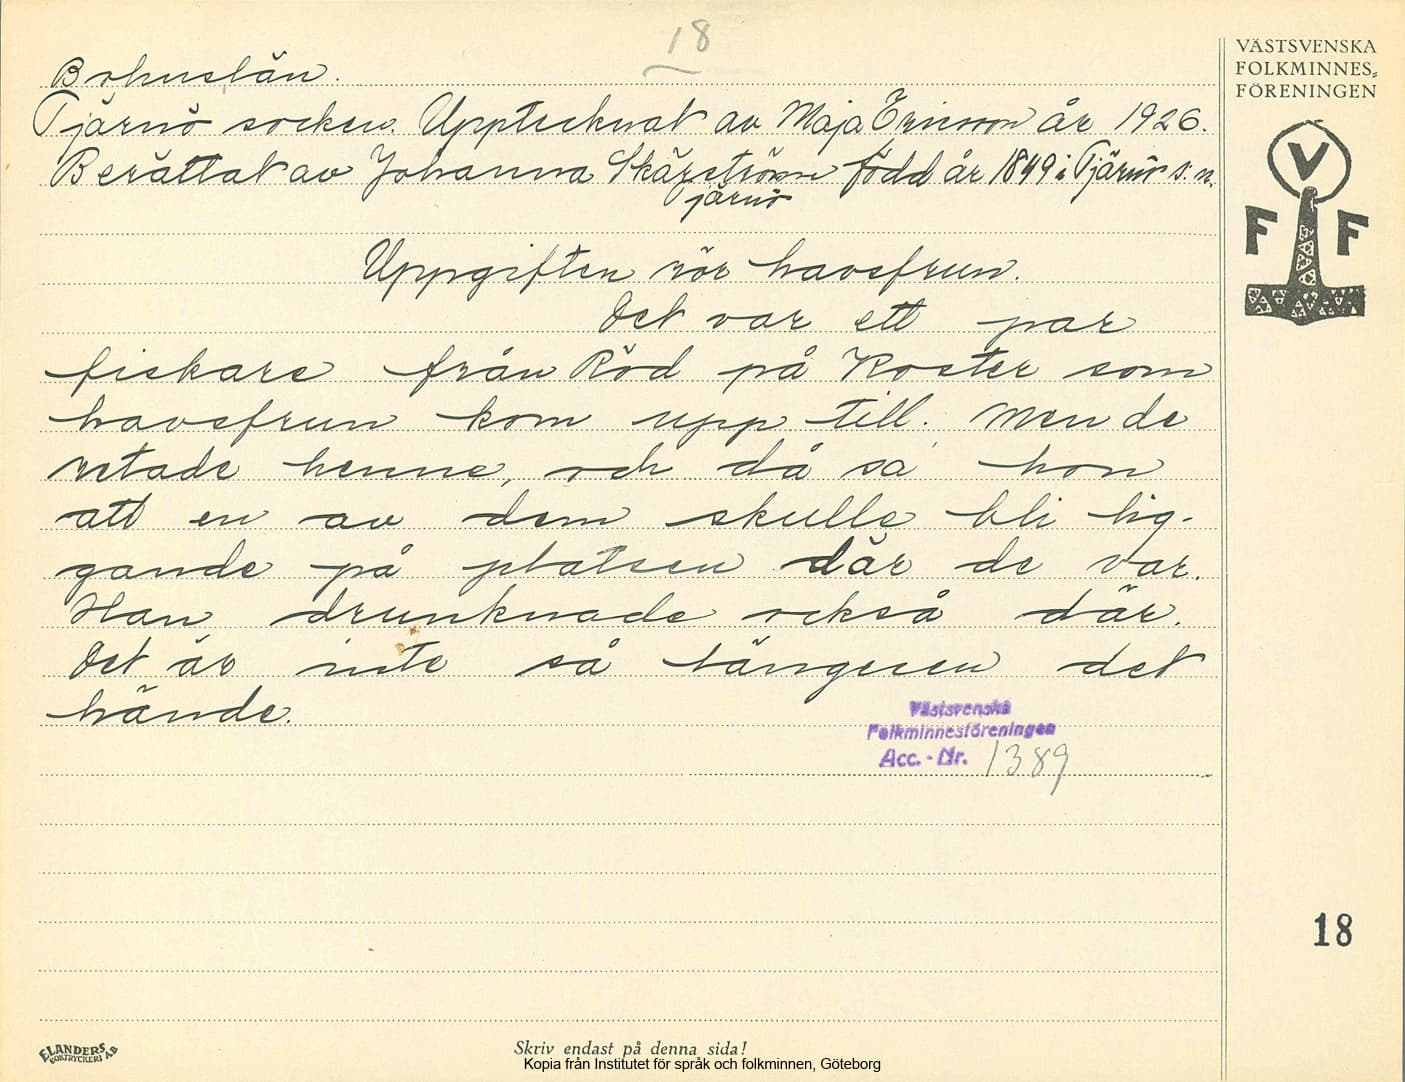 18
Bohuslän.
Tjärnö socken. Upptecknat av Maja Ericsson år 1926.
Berättat av Johanna Skärström född år 1849 i Tjärnö s.n.
Tjärnö
Uppgiften rör havsfrun.
Det var ett par
fiskare från Röd på Koster som
havsfrun kom upp till. Men de
retade henne, och då sa hon
att en av dem skulle bli lig-
gande på platsen där de var.
Han drunknade också där.
Det är inte så länge sen det
hände.
Västsvenska
Folkminnesföreningen
Acc. - Nr. 1389
VÄSTSVENSKA
FOLKMINNES-
FÖRENINGEN
V
F F
18
ELANDERS
BOKTRYCKERI AB
Skriv endast på denna sida!
Kopia från Institutet för språk och folkminnen, Göteborg